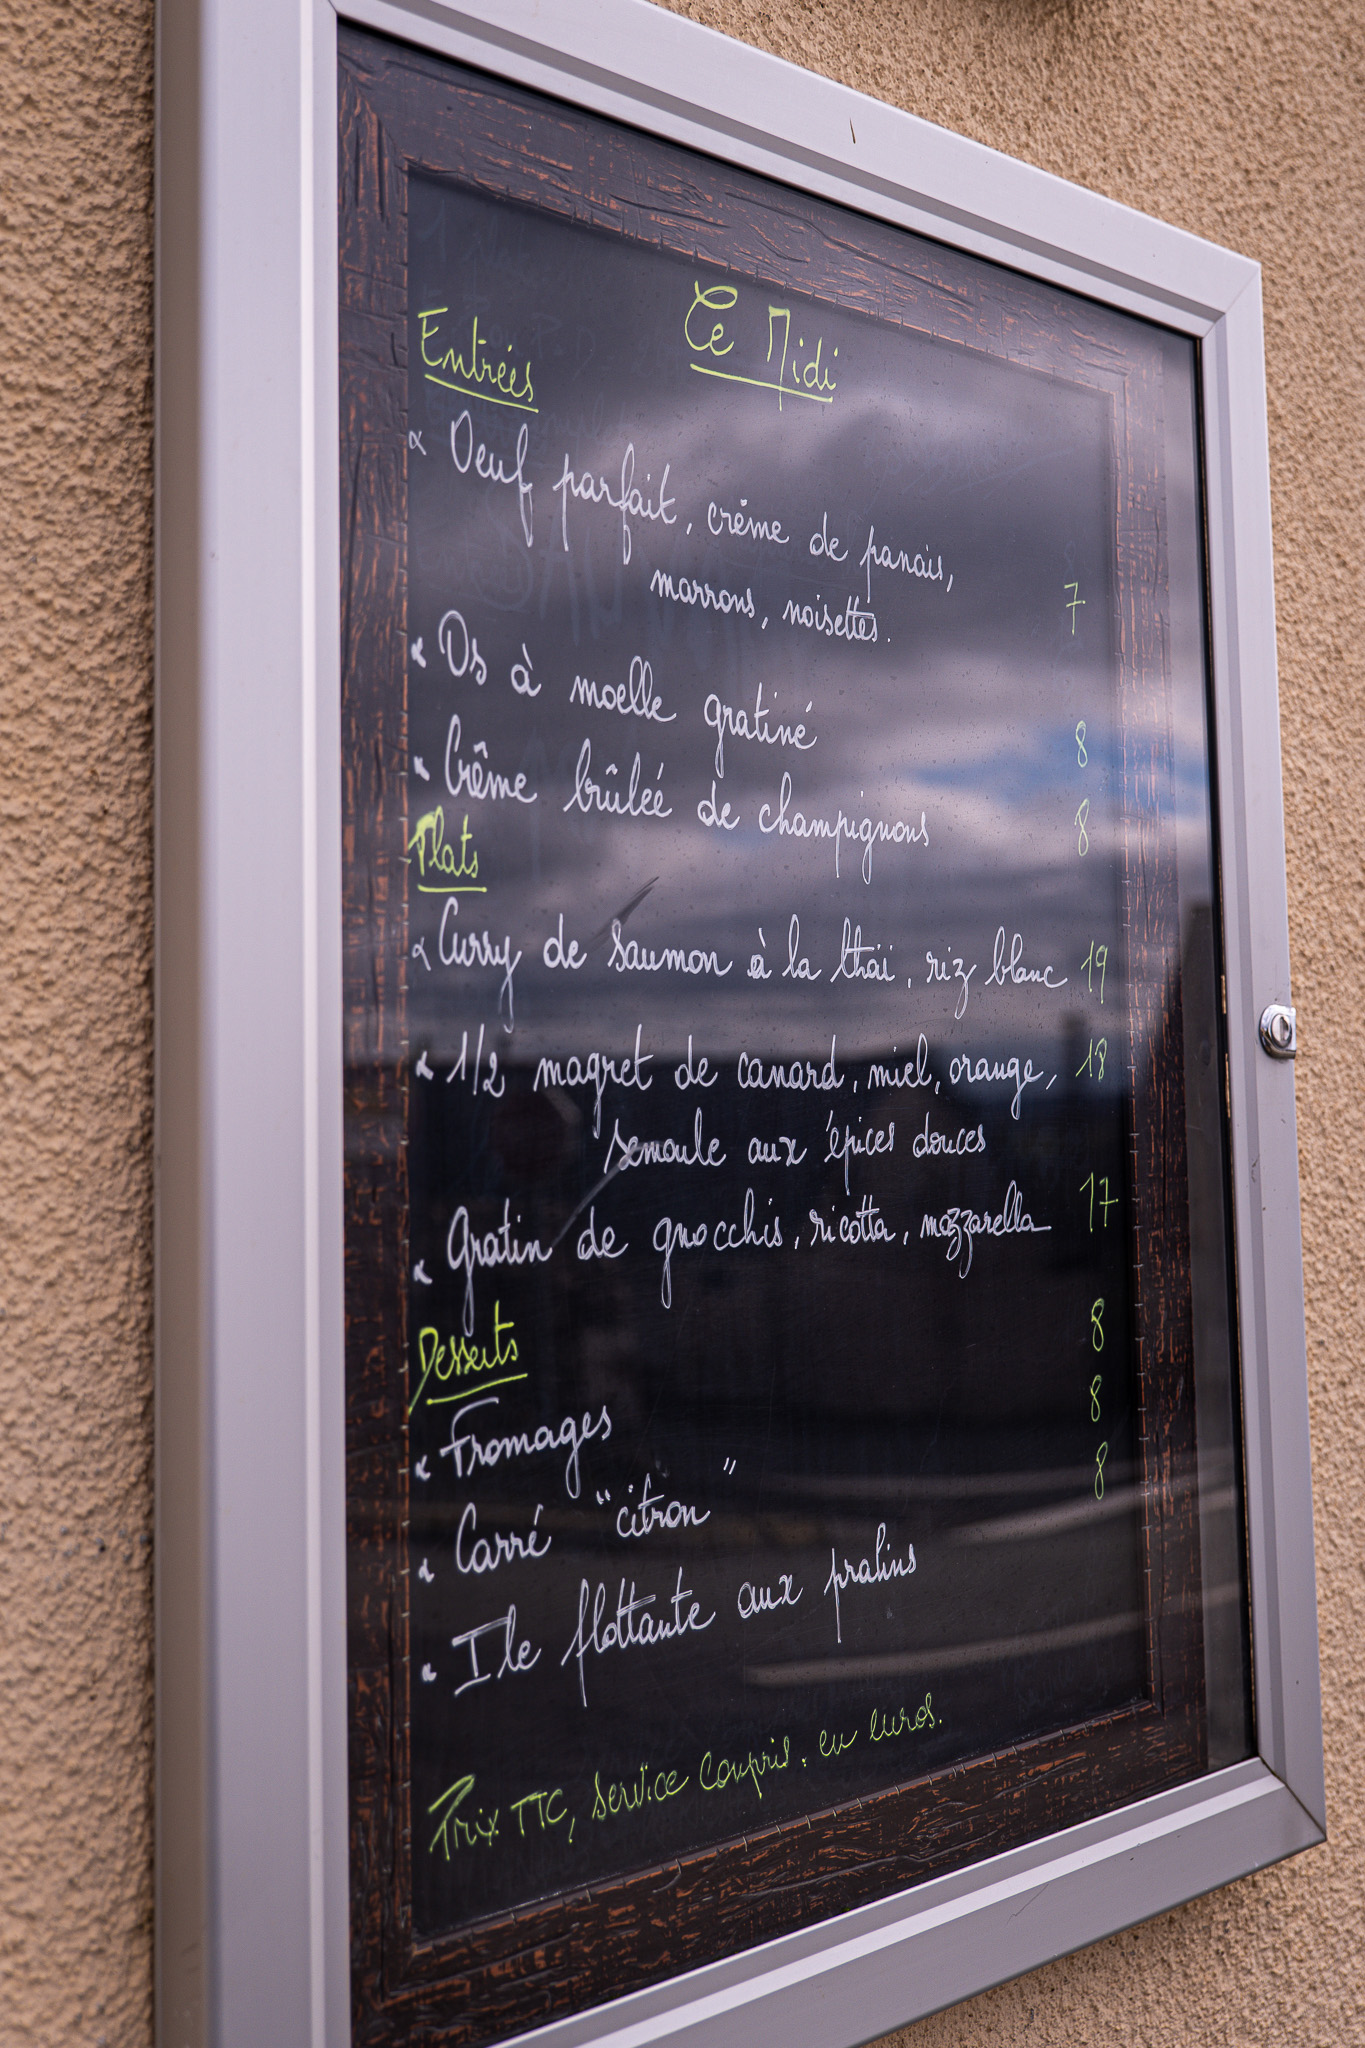 Ce Midi
Entrées
Oeuf parfait, crème de panais,
marrons, noisettes. 7
Os à moelle gratiné 8
Crème brûlée de champignons 8
Plats
Curry de saumon à la thaï, riz blanc 19
1/2 magret de canard, miel, orange, 18
semoule aux épices douces
Gratin de gnocchis, ricotta, mozzarella 17
Desserts
Fromages 8
Carré "citron" 8
Ile flottante aux pralins 8
Prix TTC, service compris. en euros.